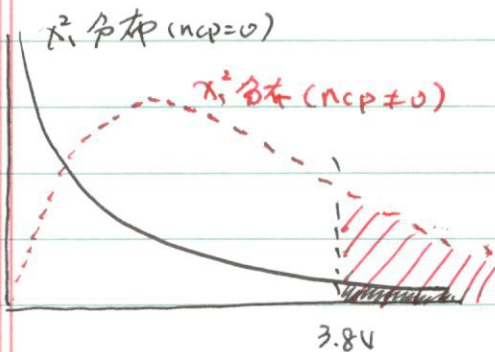 χ²₁分布 (ncp=0)
χ²₁分布 (ncp≠0)
3.84